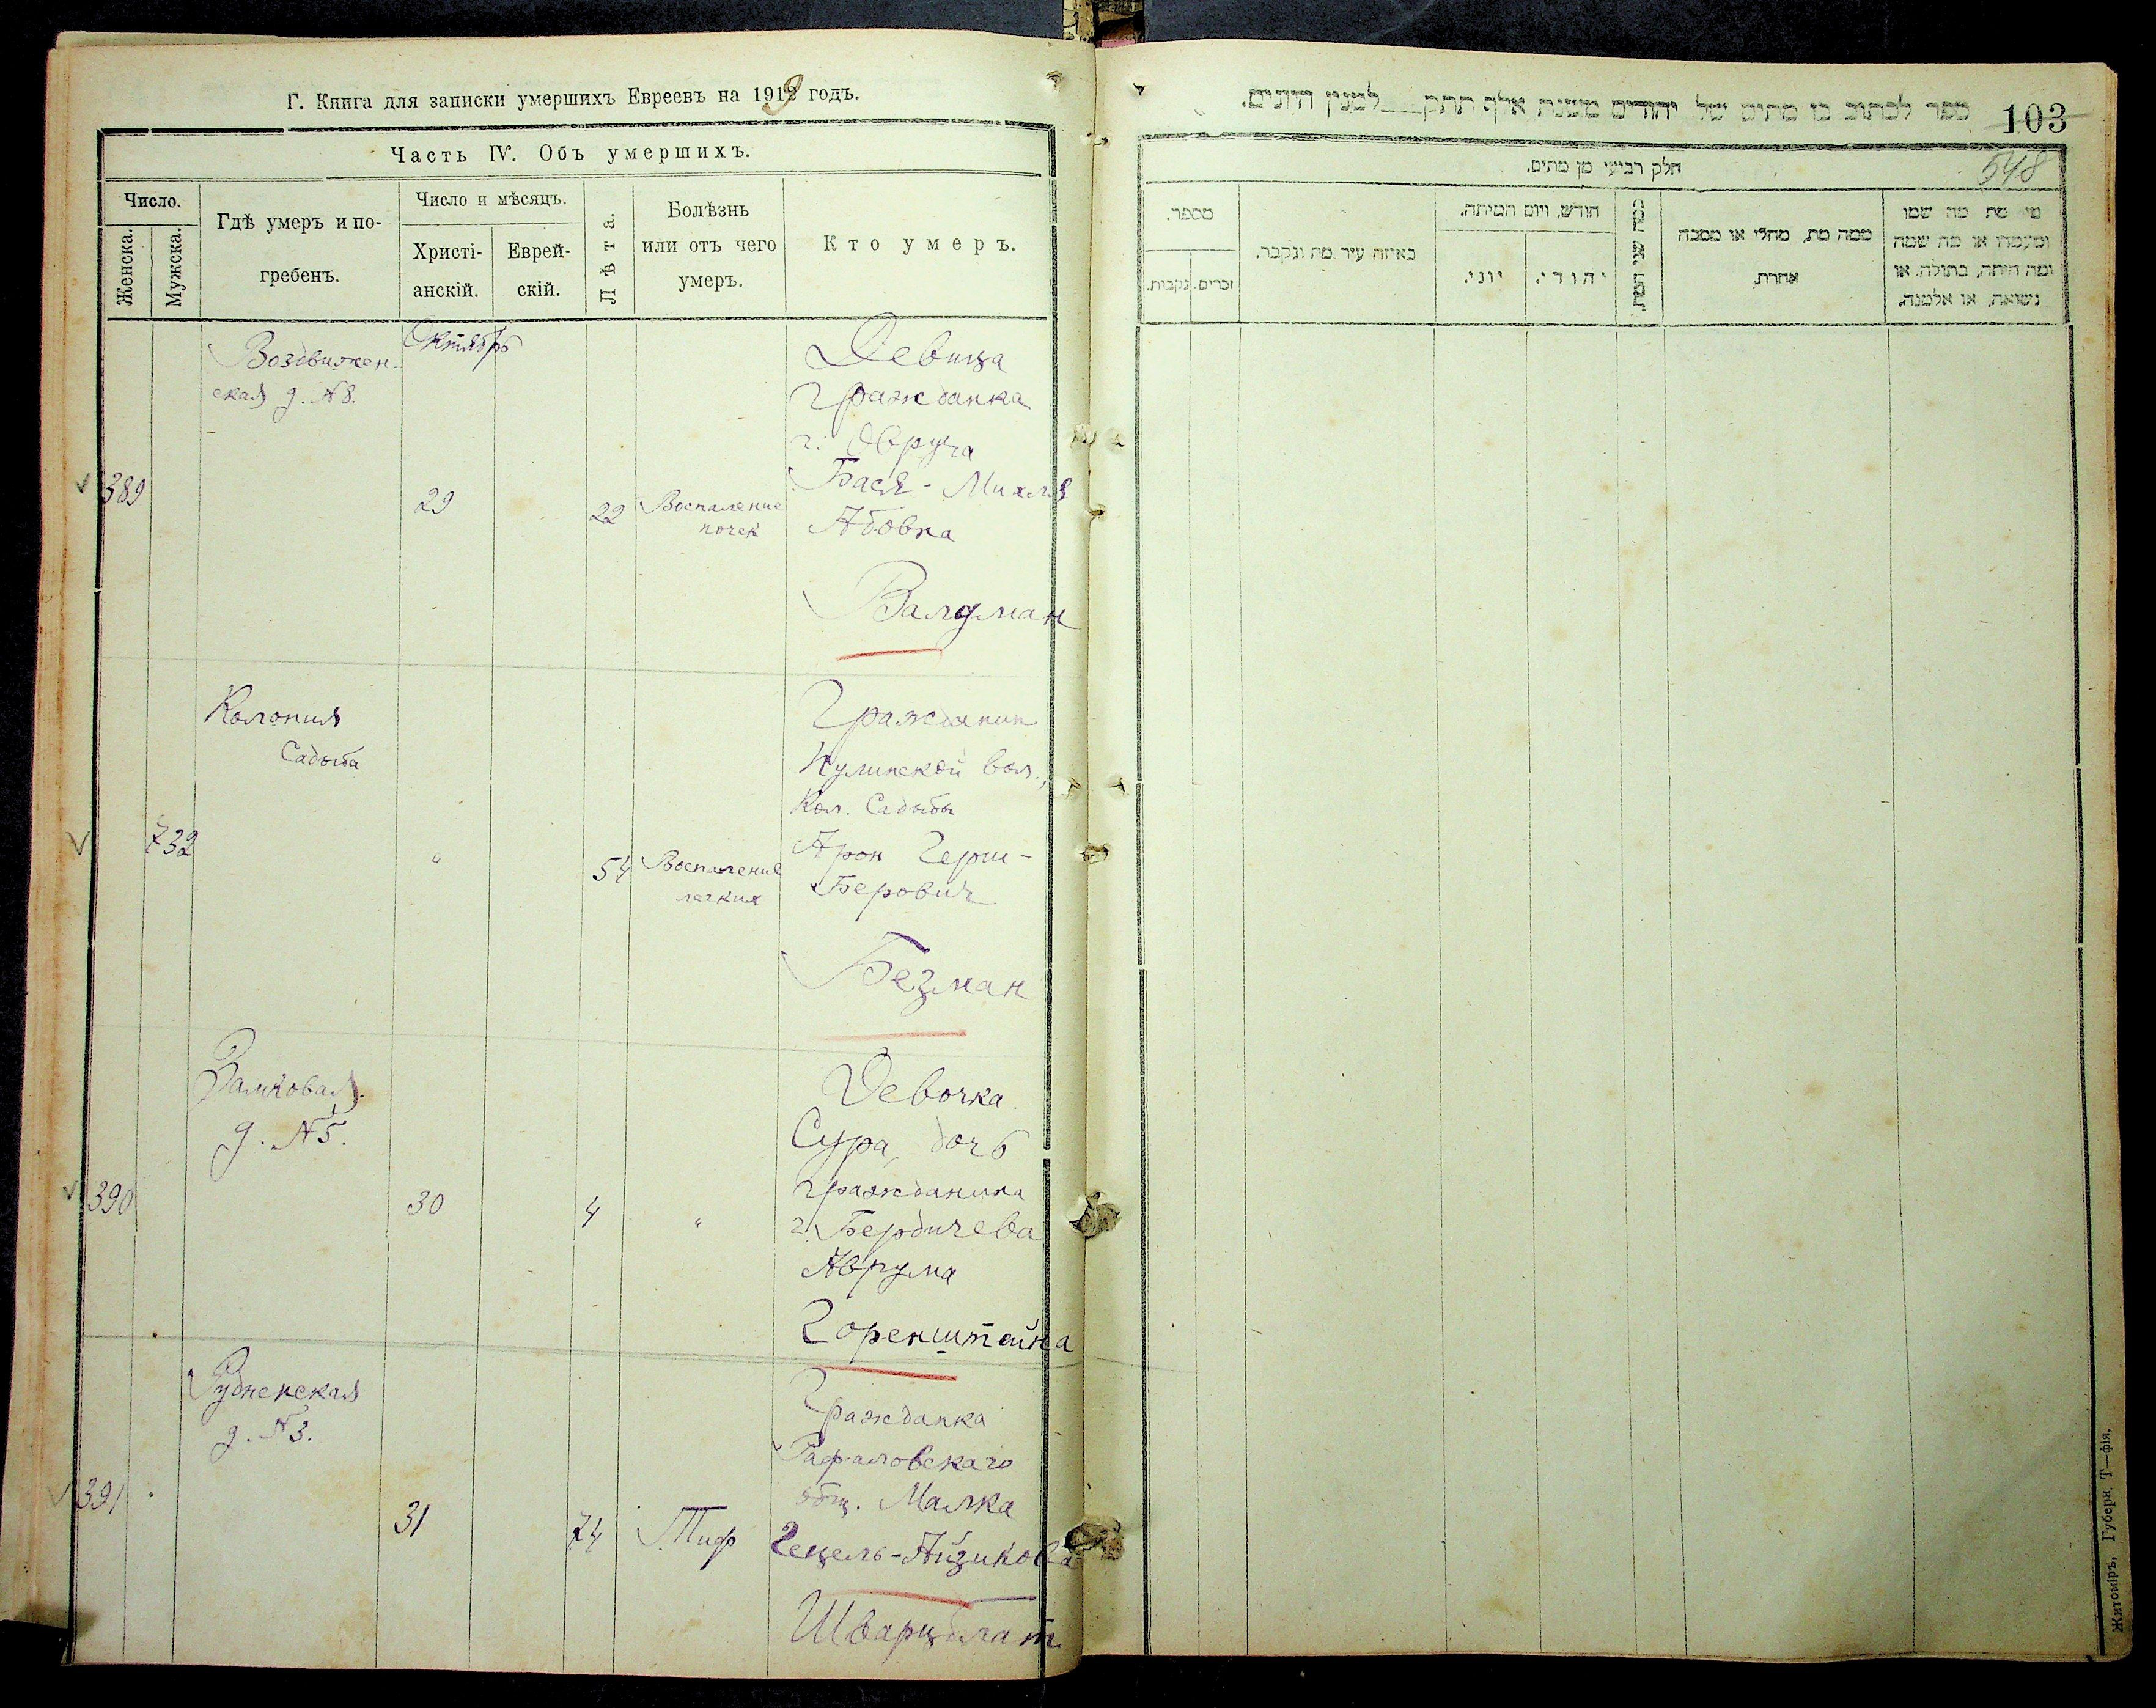 Г. Книга для записки умершихъ Евреевъ на 1919 годъ.
Часть IV. Объ умершихъ.
Число.
Женска.
Мужска.
Гдѣ умеръ и по-
гребенъ.
Число и мѣсяцъ.
Христі-
анскій.
Еврей-
скій.
Лѣта.
Болѣзнь
или отъ чего
умеръ.
Кто умеръ.
389
Воздвижен-
ская д. №8.
Октябрь
29
22
Воспаление
почек
Девица
гражданка
г. Овруча
Бася-Михля
Абовна
Валдман
732
Колония
Садыба
"
54
Воспаление
легких
Гражданин
Кулинской вол.,
Кол. Садыбы
Арон Герш-
Берович
Безман
390
Замковая
д. №5.
30
4
"
Девочка
Сура, дочь
гражданина
г. Бердичева
Аврума
Горенштейна
391
Рудненская
д. №3.
31
74
Тиф
Гражданка
Рафаловскаго
общ. Малка
Гецель-Айзикова
Шварцблат
ספר לכתוב בו מתים של יהודים משנת אלף תתק למנין היונים.
103
548
חלק רביעי מן מתים.
מספר.
נקבות.
זכרים.
באיזה עיר מת ונקבר.
חודש, ויום המיתה.
יוני.
יהודי.
כמה שני המת
ממה מת, מחלי או מסבה
אחרת.
מי מת מה שמו
ומעמדו או מה שמה
ומה היתה, בתולה, או
נשואה, או אלמנה.
Житоміръ, Губерн. Т—фія.